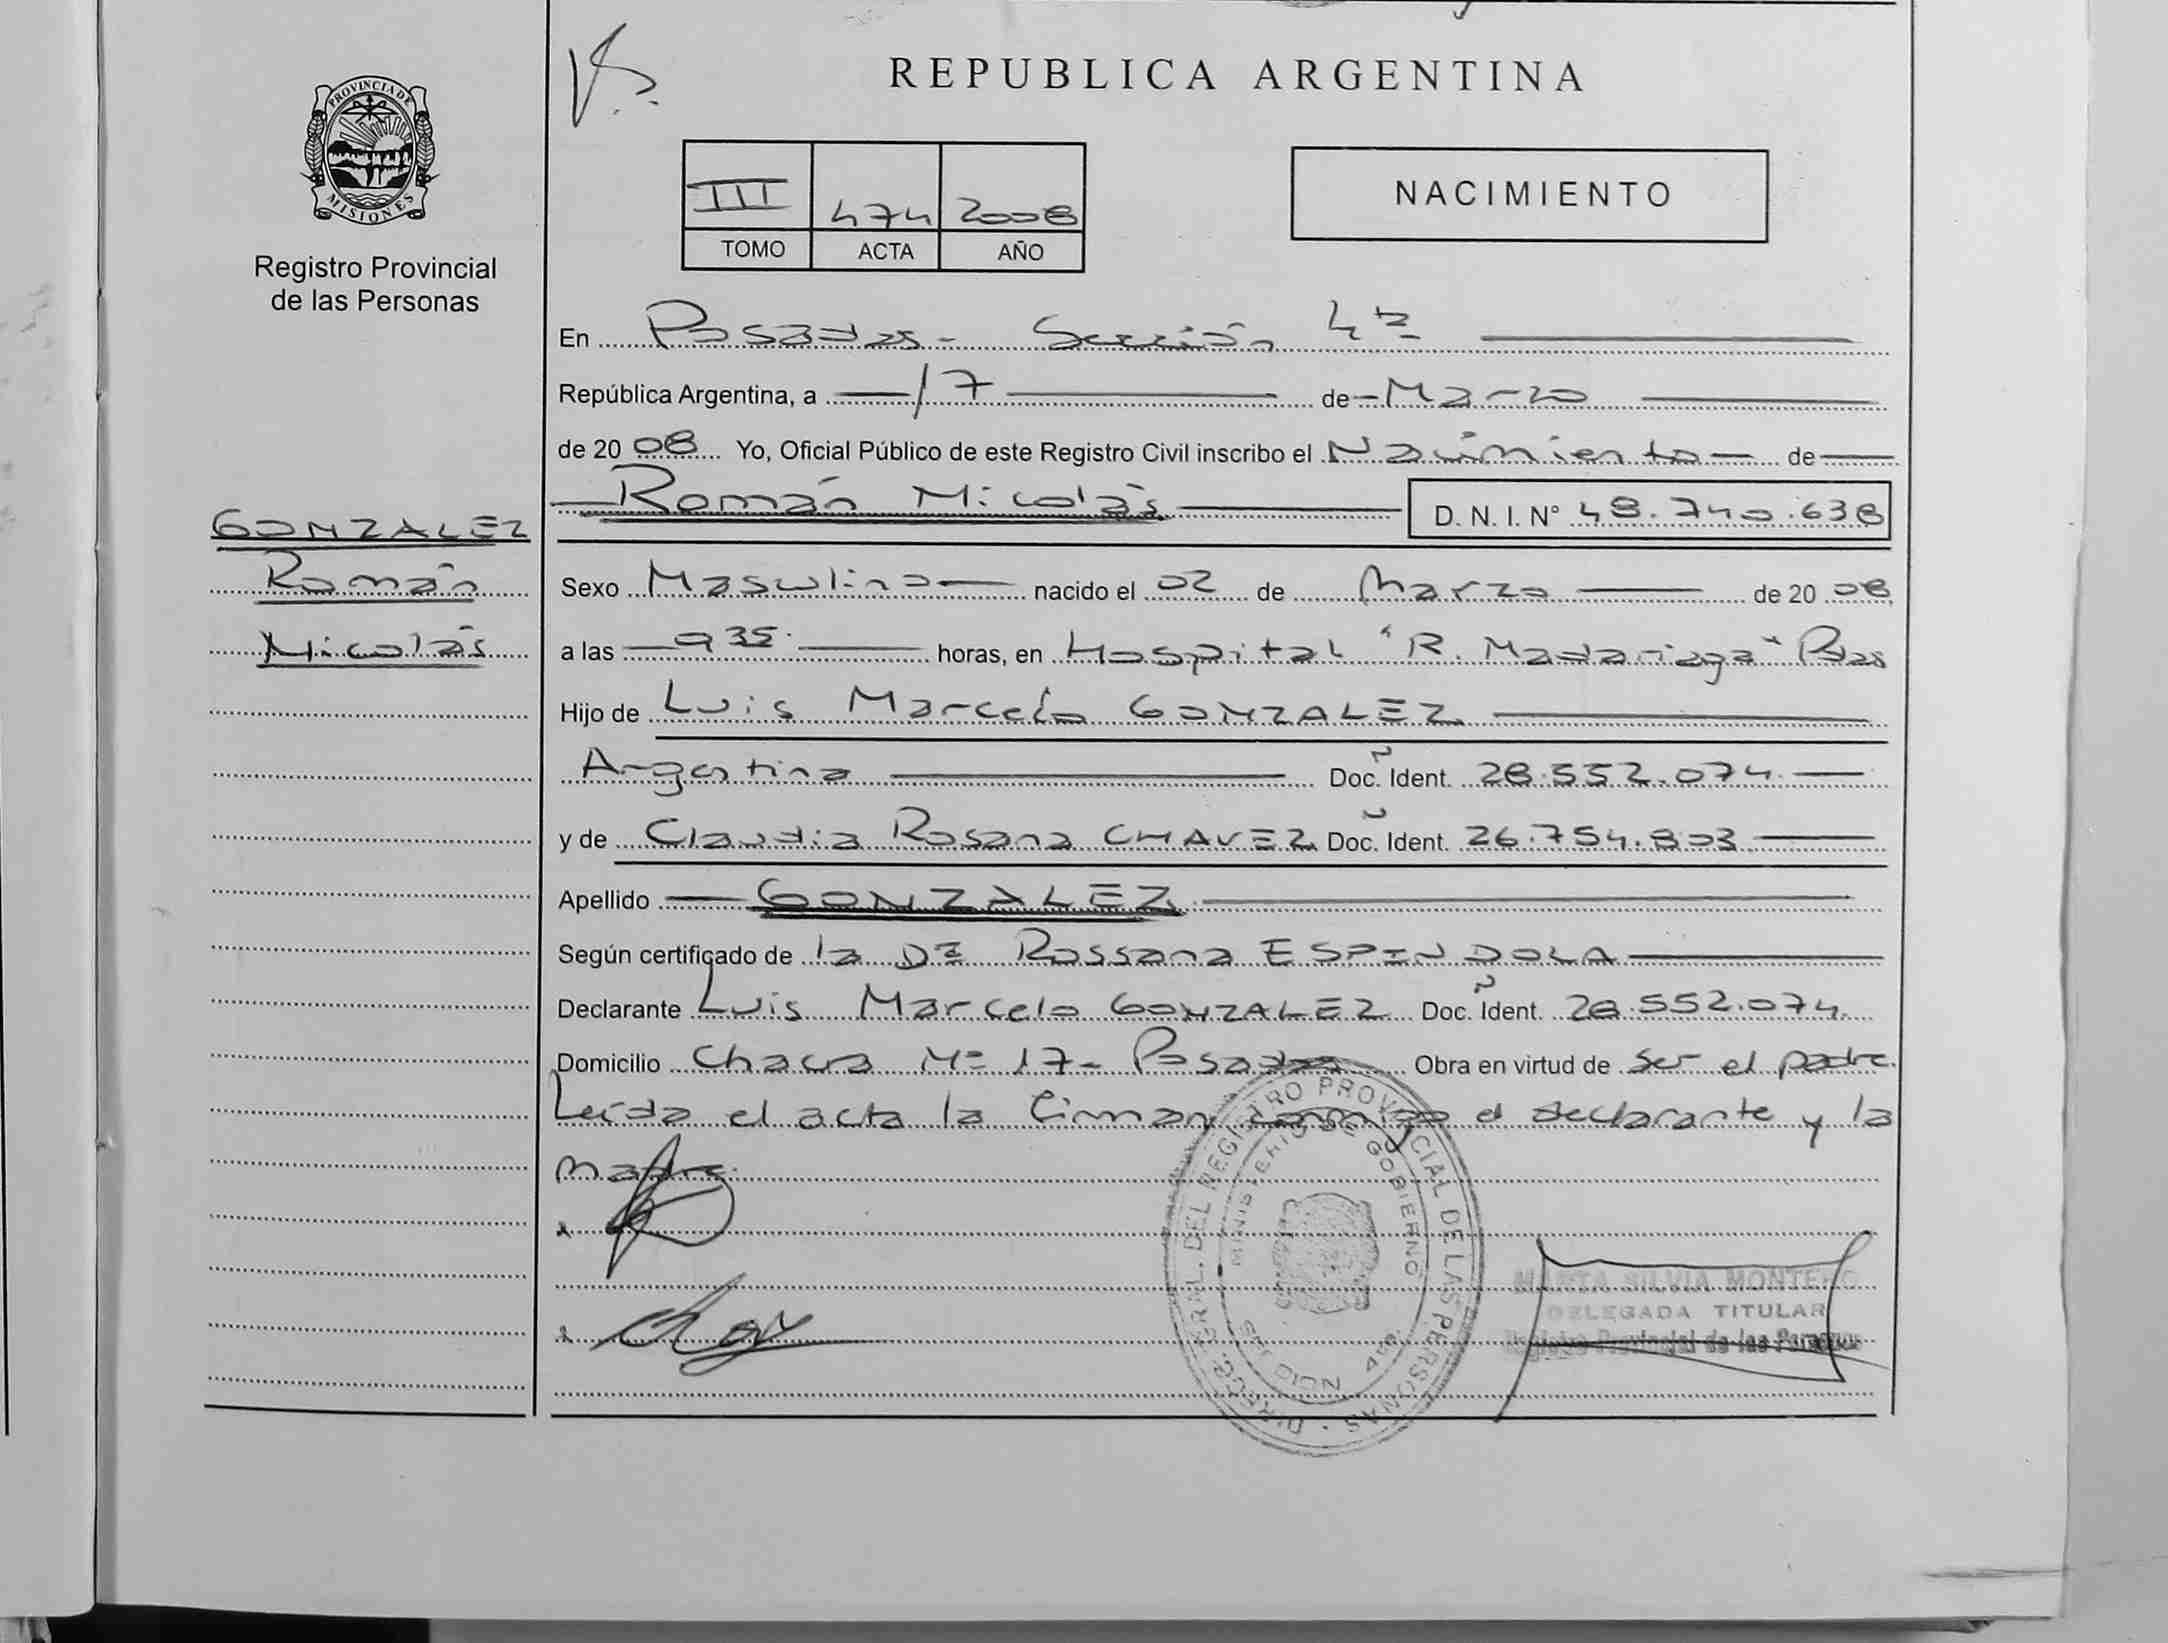 REPUBLICA ARGENTINA
PROVINCIA DE MISIONES
Registro Provincial
de las Personas
III 474 2008
TOMO ACTA AÑO
NACIMIENTO
En Posadas - Sección 4ª
República Argentina, a 17 de Marzo
de 2008 Yo, Oficial Público de este Registro Civil inscribo el Nacimiento de
Román Nicolás D. N. I. N° 48.740.638
GONZALEZ
Román
Nicolás
Sexo Masculino nacido el 02 de Marzo de 2008
a las 9 35 horas, en Hospital "R. Madariaga" Pdas
Hijo de Luis Marcelo GONZALEZ
Argentina Doc. Ident. 28.552.074
y de Claudia Rosana CHAVEZ Doc. Ident. 26.754.803
Apellido GONZALEZ
Según certificado de la Dª Rossana ESPINDOLA
Declarante Luis Marcelo GONZALEZ Doc. Ident. 28.552.074
Domicilio Chacra Nº 17 - Posadas Obra en virtud de ser el padre
Leída el acta la firman conmigo el declarante y la
madre.
DIREC. GRAL. DEL REGISTRO PROVINCIAL DE LAS PERSONAS
MINISTERIO DE GOBIERNO
MARTA SILVIA MONTERO
DELEGADA TITULAR
Registro Provincial de las Personas